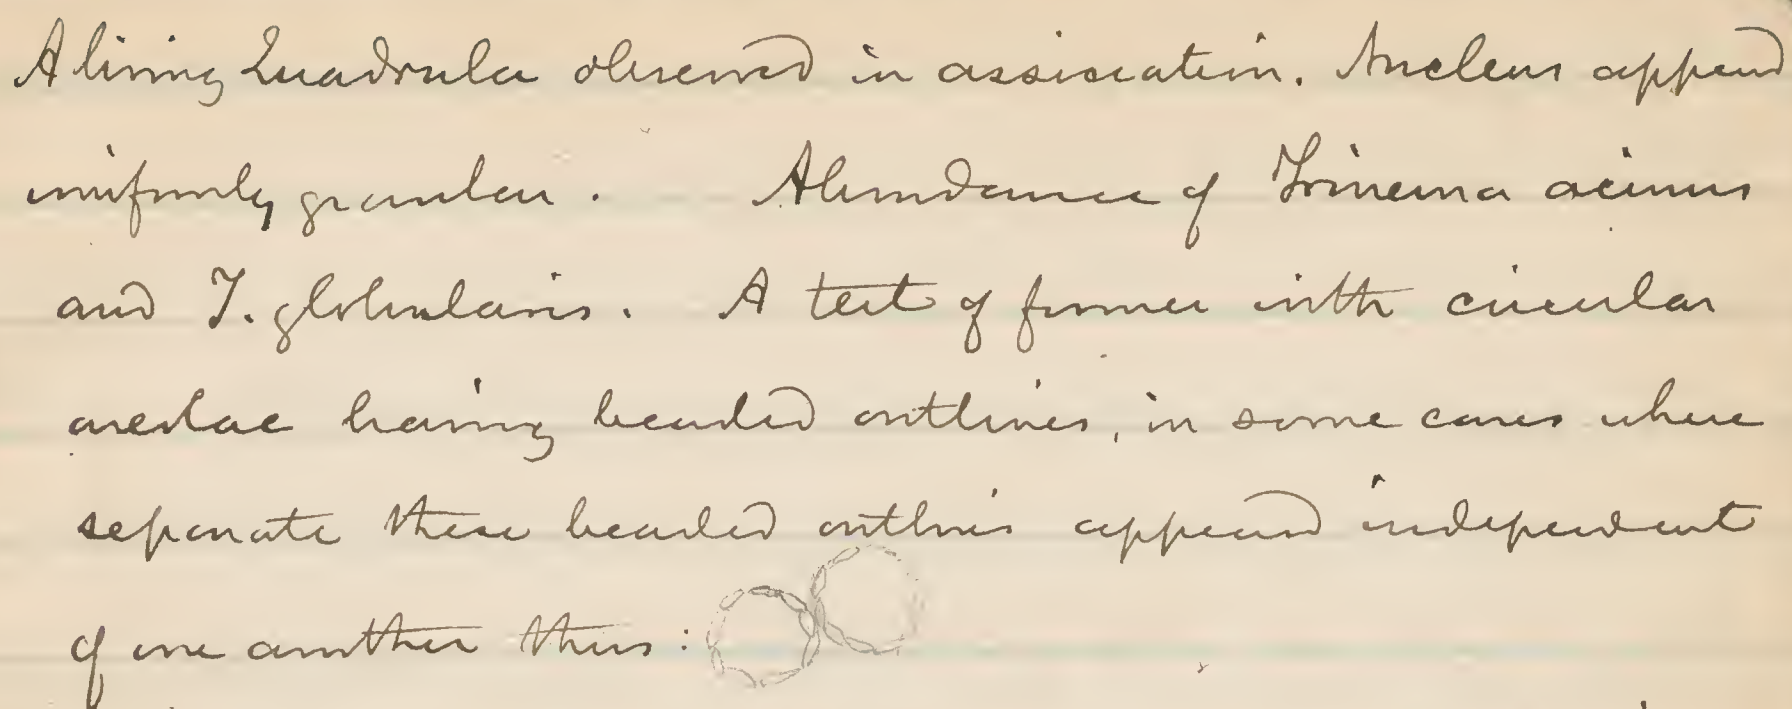 A living Quadrula observed in association. Nucleus appeard
uniformly granular. Abundance of Trinema acinus
and T. globularis. A test of former with circular
areolae having beaded outlines, in some cases where
separate these beaded outlines appeard independent
of one another thus: